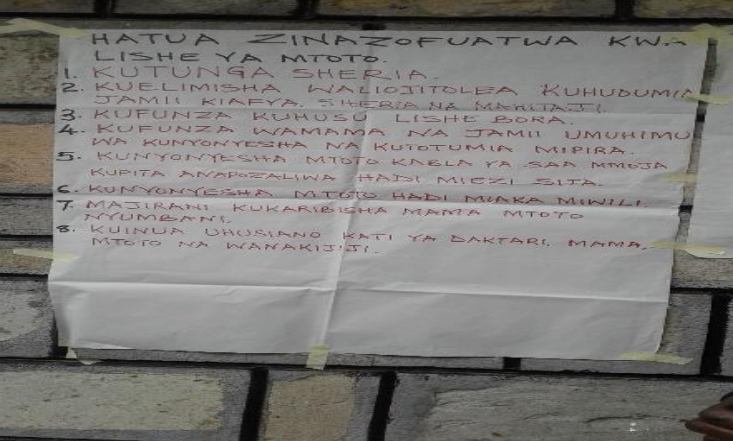 HATUA ZINAZOFUATWA KWA
LISHE YA MTOTO.
1. KUTUNGA SHERIA.
2. KUELIMISHA WALIOJITOLEA KUHUDUMIA
JAMII KIAFYA, SHERIA NA MAHITAJI.
3. KUFUNZA KUHUSU LISHE BORA.
4. KUFUNZA WAMAMA NA JAMII UMUHIMU
WA KUNYONYESHA NA KUTOTUMIA MIPIRA.
5. KUNYONYESHA MTOTO KABLA YA SAA MMOJA
KUPITA ANAPOZALIWA HADI MIEZI SITA.
6. KUNYONYESHA MTOTO HADI MIAKA MIWILI.
7. MAJIRANI KUKARIBISHA MAMA MTOTO
NYUMBANI.
8. KUINUA UHUSIANO KATI YA DAKTARI, MAMA,
MTOTO NA WANAKIJIJI.